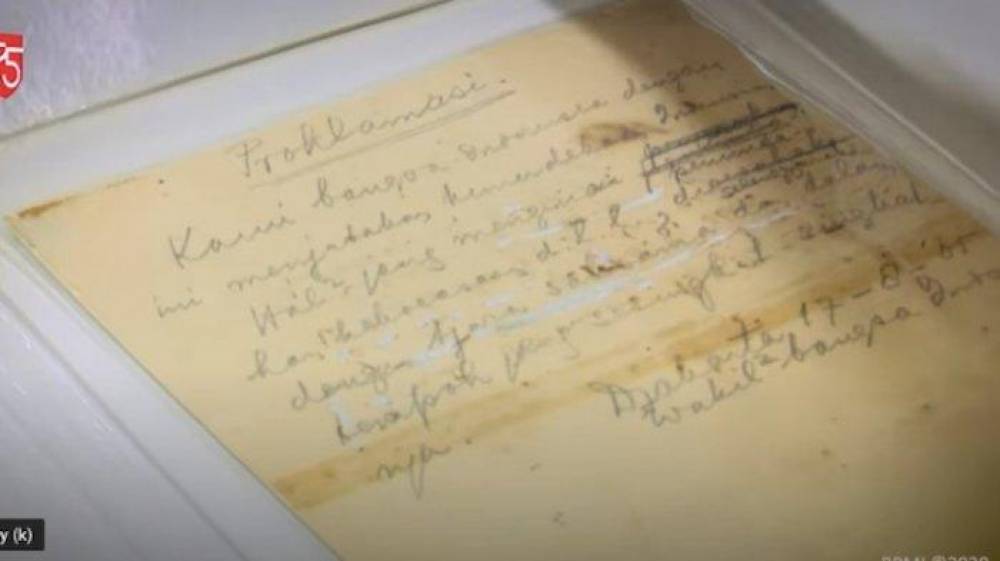 Proklamasi.
Kami bangsa Indonesia dengan
ini menjatakan kemerdekaan Indon
Hal2 jang mengenai
kekoeasaan d.l.l.,
dengan tjara saksama dan dalam
tempoh jang sesingkat singkat
nja.
Djakarta, 17-8-'05
Wakil2 bangsa Indo
75
y (k)